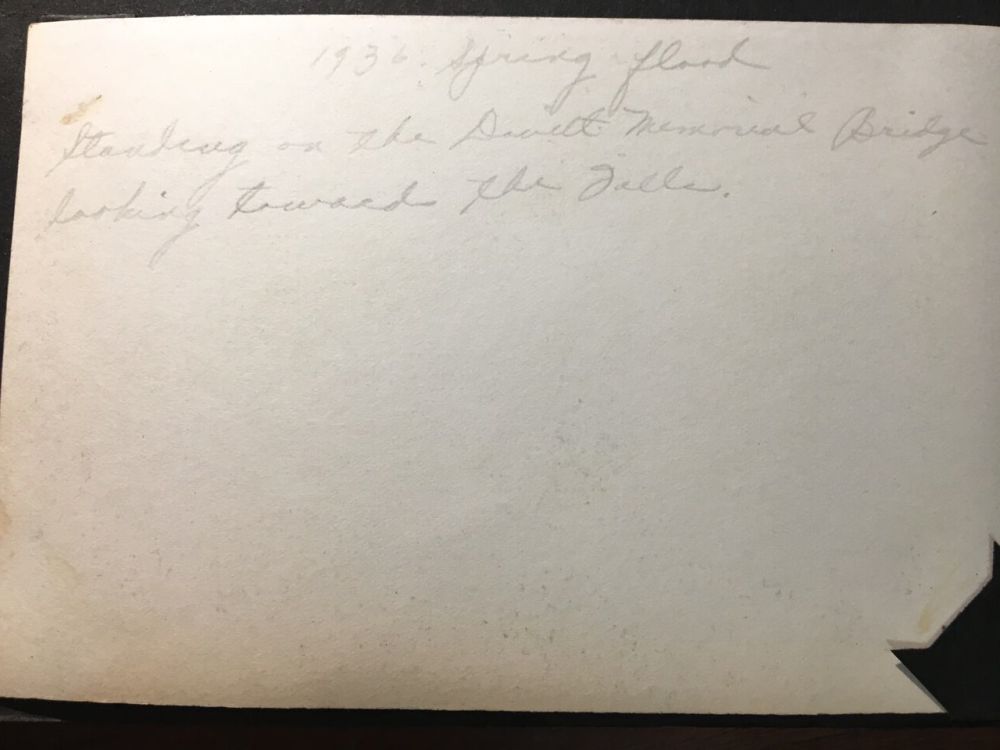 1936. Spring flood
Standing on the Dewitt Memorial Bridge
looking toward the Falls.